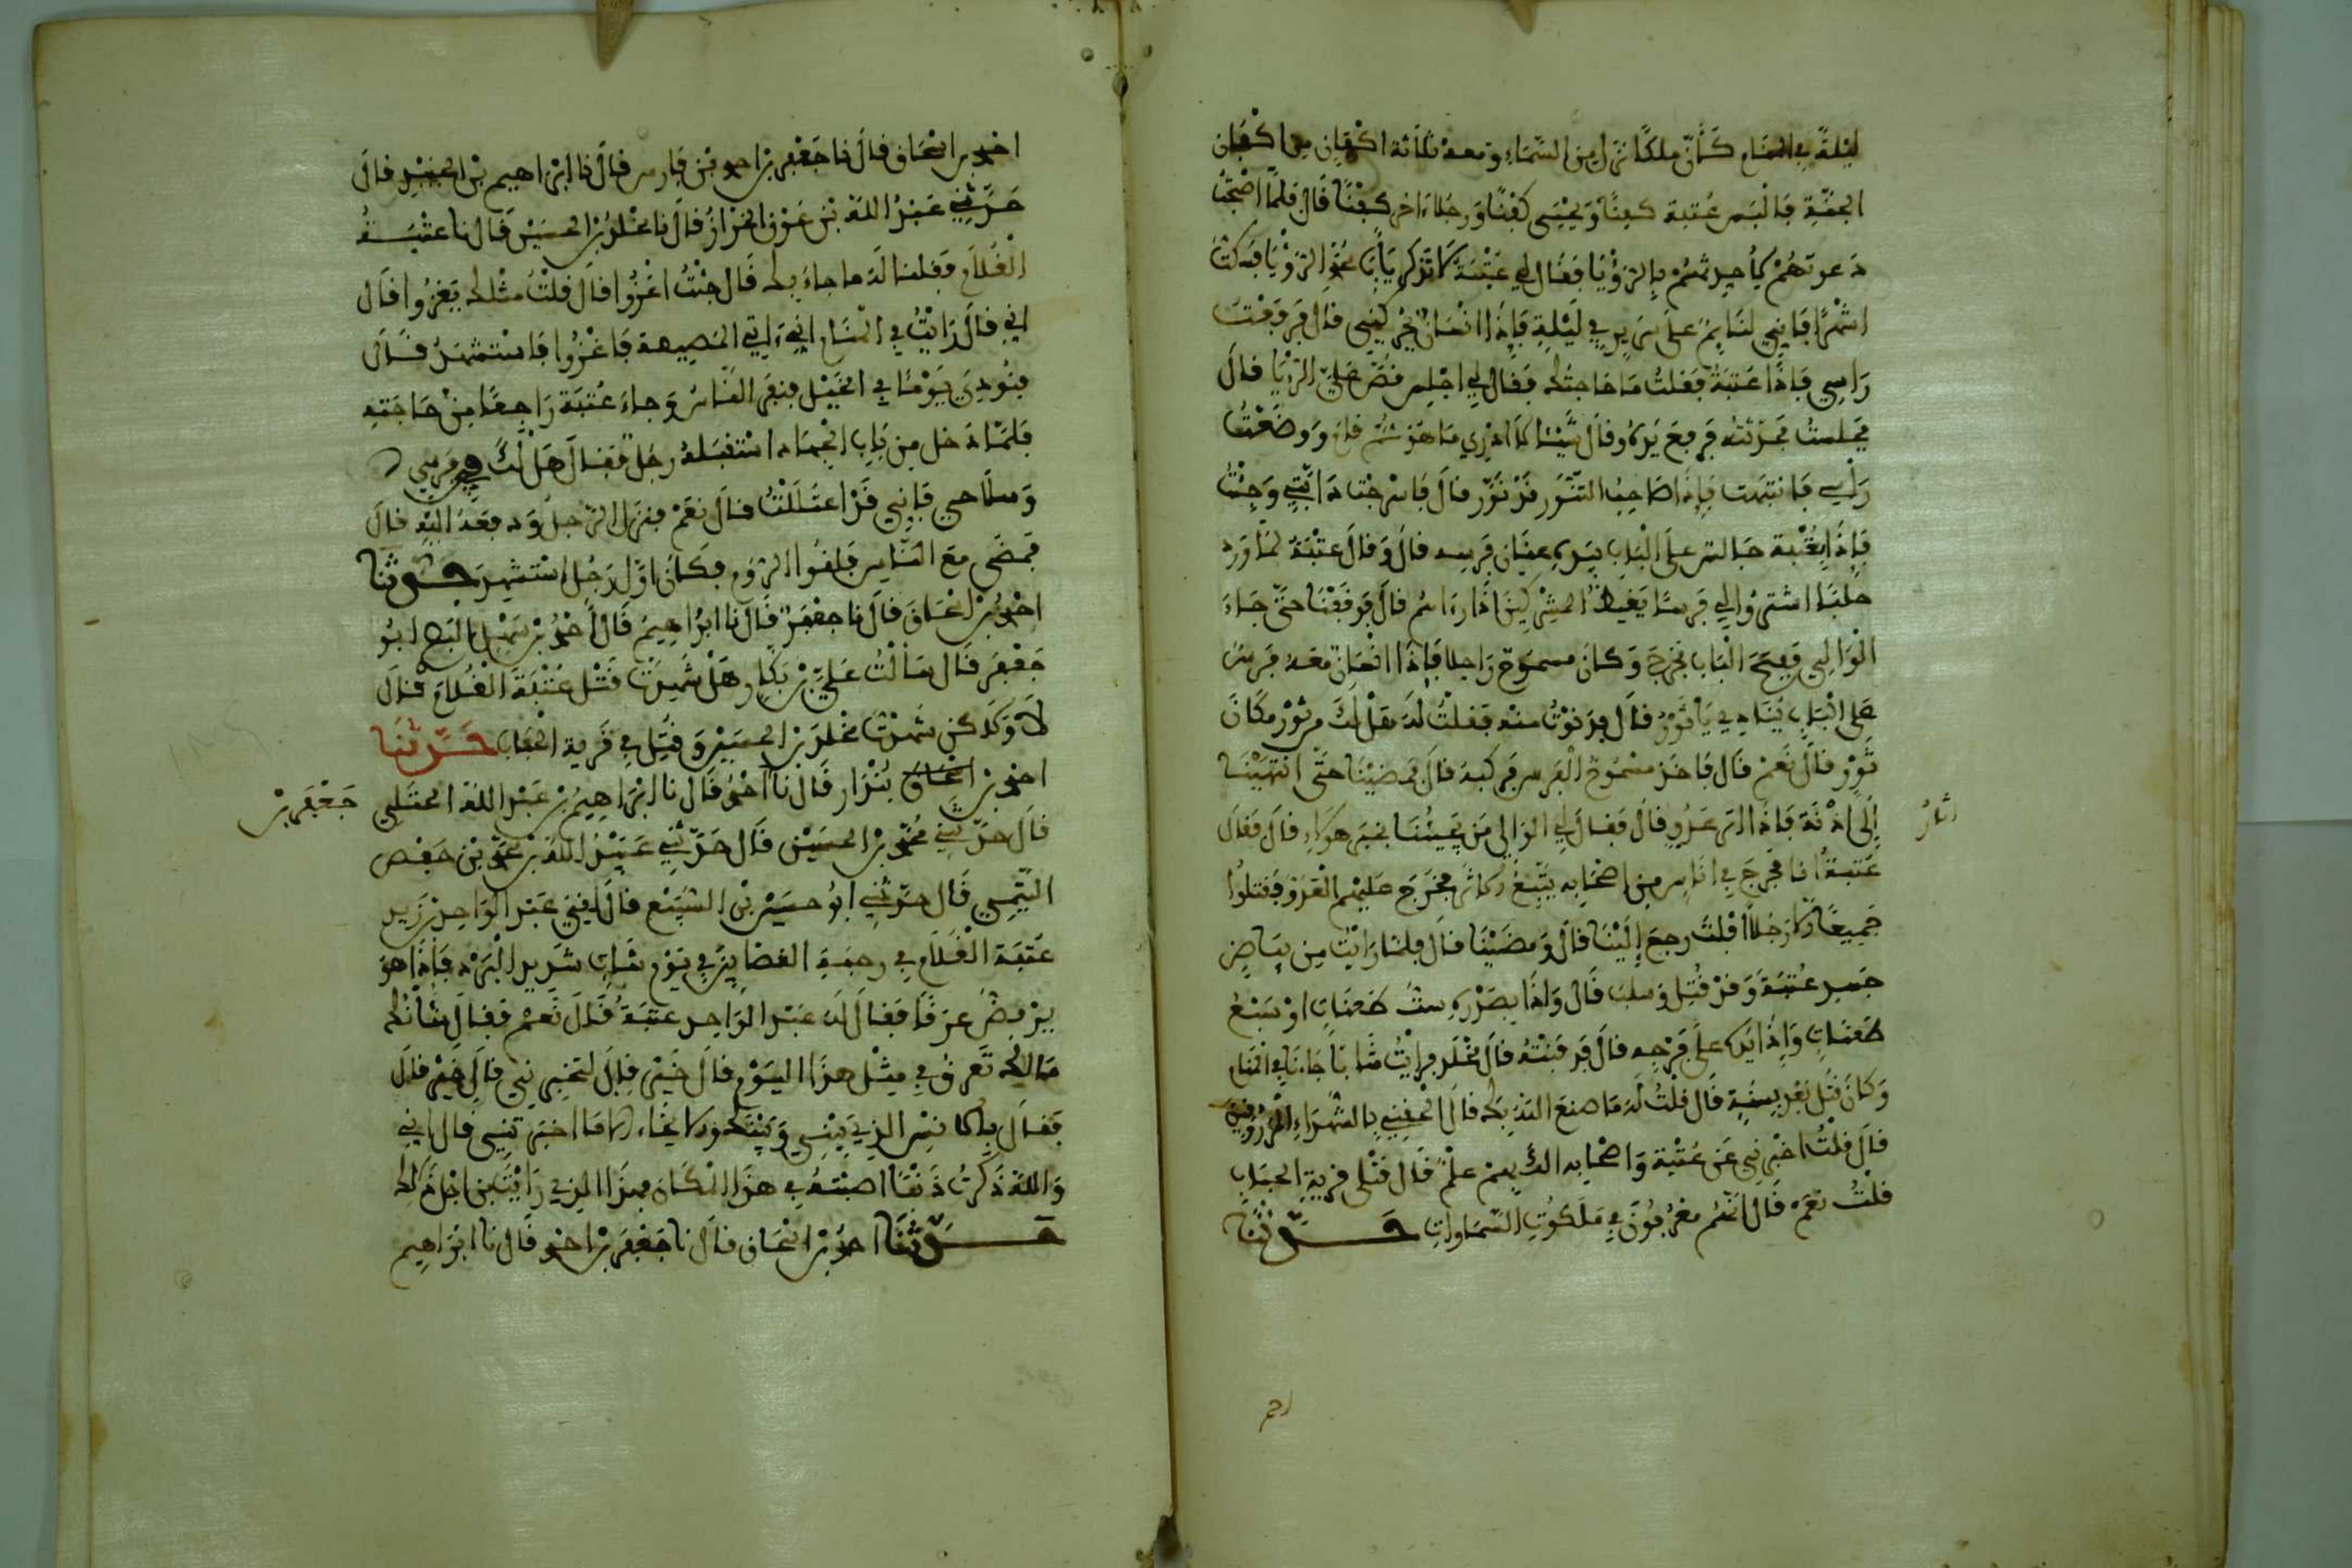 ليلة في المنام كأن ملكا نزل من السماء ومعه ثلاثة اكفان من اكفان
الجنة فالبس عتبة كفنا ويحيى كفنا ورجلا اخر كفنا قال فلما اصبحت
دعوتهم لاحدثهم بالرؤيا فقال لي عتبة لا تذكر يا با محمد الرؤيا فمكثت
اشهرا فاني لنايم على سريري في ليلة فإذا انسان يحركني قال فرفعت
راسي فاذا عتبة فقلت ما حاجتك فقال لي اجلس قص علي الرؤيا قال
فجلست فحدثته فرفع يده وقال شيئا لا ادري ما هو ثم قام ووضعت
راسي فانتبهت فإذا صاحب التنور قد نور قال فاسرجت دابتي وجئت
فإذا بعتبة جالس على الباب بيده عنان فرسه قال وقال عتبة لما ورد
حلبا اشتروا لي فرسا يغيظ المشركين اذا راءاه قال فوقفنا حتى جاء
الوالي ففتح الباب فخرج وكان مسموح راجلا فإذا انسان معه فرس
على الباب ينادي يا ثور قال فدنوت منه فقلت له هل لك من ثور مكان
ثور قال نعم قال فاخذ مسموح الفرس فركبه قال فمضينا حتى انتهينا
إلى اذنة فإذا اثر عدو قال فقال لي الوالي من يجيئنا بخبر هولاء قال فقال
اثار
عتبة انا فخرج في اناس من اصحابه يتبع الاثار فخرج عليهم العدو فقتلوا
جميعا الا رجلا افلت رجع إلينا قال ومضينا قال فلما رايت من بياض
جسد عتبة وقد قتل وسلب قال واذا بصدره ست طعنات او سبع
طعنات وإذا يده على فرجه قال فدفنته قال مخلد فرايت شابا جاءنا في المنام
وكان قتل بعد بسنة قال قلت له ما صنع الله بك قال الحقني بالشهداء المرزوقين
قال قلت اخبرني عن عتبة واصحابه الك بهم علم قال قتلى قرية الحباب
قلت نعم قال انهم معروفون في ملكوت السماوات حدثنا
احمد بن اسحاق قال نا جعفر بن احمد بن فارس قال نا ابراهيم بن الجنيد قال
حدثني عبد الله بن عون الخراز قال نا مخلد بن الحسين قال نا عتبة
الغلام فقلنا له ما جاء بك قال جئت اغزوا قال قلت مثلك يغزوا قال
اني قال رايت في المنام اني ءاتي المصيصة فاغزوا فاستشهد قال
فنودي يوما في الخيل فنفر الناس وجاء عتبة راجعا من حاجته
فلما دخل من باب الجهاد استقبله رجل فقال هل لك في فرسي
وسلاحي فإني قد اعتللت قال نعم فنزل الرجل ودفعه اليه قال
فمضى مع الناس فلقوا الروم فكان اول رجل استشهد حدثنا
احمد بن اسحاق قال نا جعفر قال نا ابراهيم قال احمد بن سهل البج ابو
جعفر قال سالت علي بن بكار هل شهدت قتل عتبة الغلام قال
لا ولاكن شهدت مخلد بن الحسين وقتل في قرية الحباب حدثنا
احمد بن اسحاق بندار قال نا احمد قال نا ابراهيم بن عبد الله الختلي
جعفر بن
قال حدثني محمد بن الحسين قال حدثني عبيد الله بن محمد بن حفص
التيمي قال حدثني ابو حسين بن السبع قال لقيني عبد الواحد بن زيد
عتبة الغلام في رحبة القصابين في يوم شات شديد البرد فإذا هو
يرفض عرقا فقال له عبد الواحد عتبة قال نعم فقال ما شأنك
مالك تعرق في مثل هذا اليوم قال خير قال لتخبرني قال خير قال
فقال للانس الذي بيني وبينك والاخاء الا ما اخبرتني قال اني
والله ذكرت ذنبا اصبته في هذا المكان فهذا الذي رايت من اجل ذلك
حدثنا احمد بن اسحاق قال نا جعفر بن احمد قال نا ابراهيم